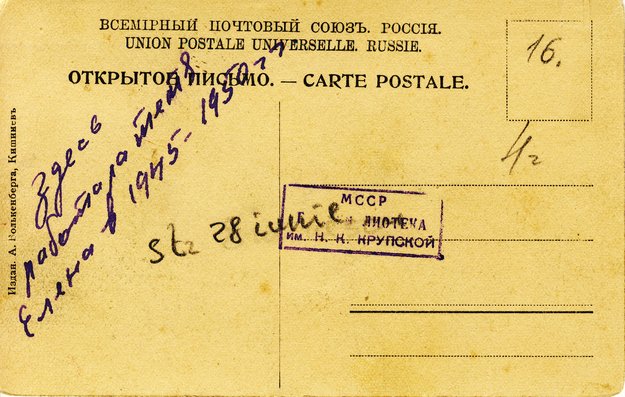 ВСЕМІРНЫЙ ПОЧТОВЫЙ СОЮЗЪ. РОССІЯ.
UNION POSTALE UNIVERSELLE. RUSSIE.
ОТКРЫТОЕ ПИСЬМО. — CARTE POSTALE.
16.
Здесь
работала тетя
Елена в 1945-1950 г.
Издан. А. Волькенберга, Кишиневъ
МССР
ЛИОТЕКА
ИМ. Н. К. КРУПСКОЙ
str 28 iunie